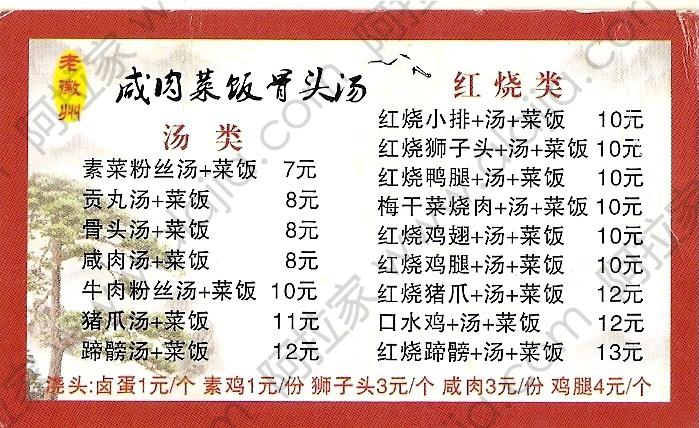 老徽州
咸肉菜饭骨头汤
汤类
素菜粉丝汤+菜饭 7元
贡丸汤+菜饭 8元
骨头汤+菜饭 8元
咸肉汤+菜饭 8元
牛肉粉丝汤+菜饭 10元
猪爪汤+菜饭 11元
蹄髈汤+菜饭 12元
红烧类
红烧小排+汤+菜饭 10元
红烧狮子头+汤+菜饭 10元
红烧鸭腿+汤+菜饭 10元
梅干菜烧肉+汤+菜饭 10元
红烧鸡翅+汤+菜饭 10元
红烧鸡腿+汤+菜饭 10元
红烧猪爪+汤+菜饭 12元
口水鸡+汤+菜饭 12元
红烧蹄髈+汤+菜饭 13元
浇头:卤蛋1元/个 素鸡1元/份 狮子头3元/个 咸肉3元/份 鸡腿4元/个